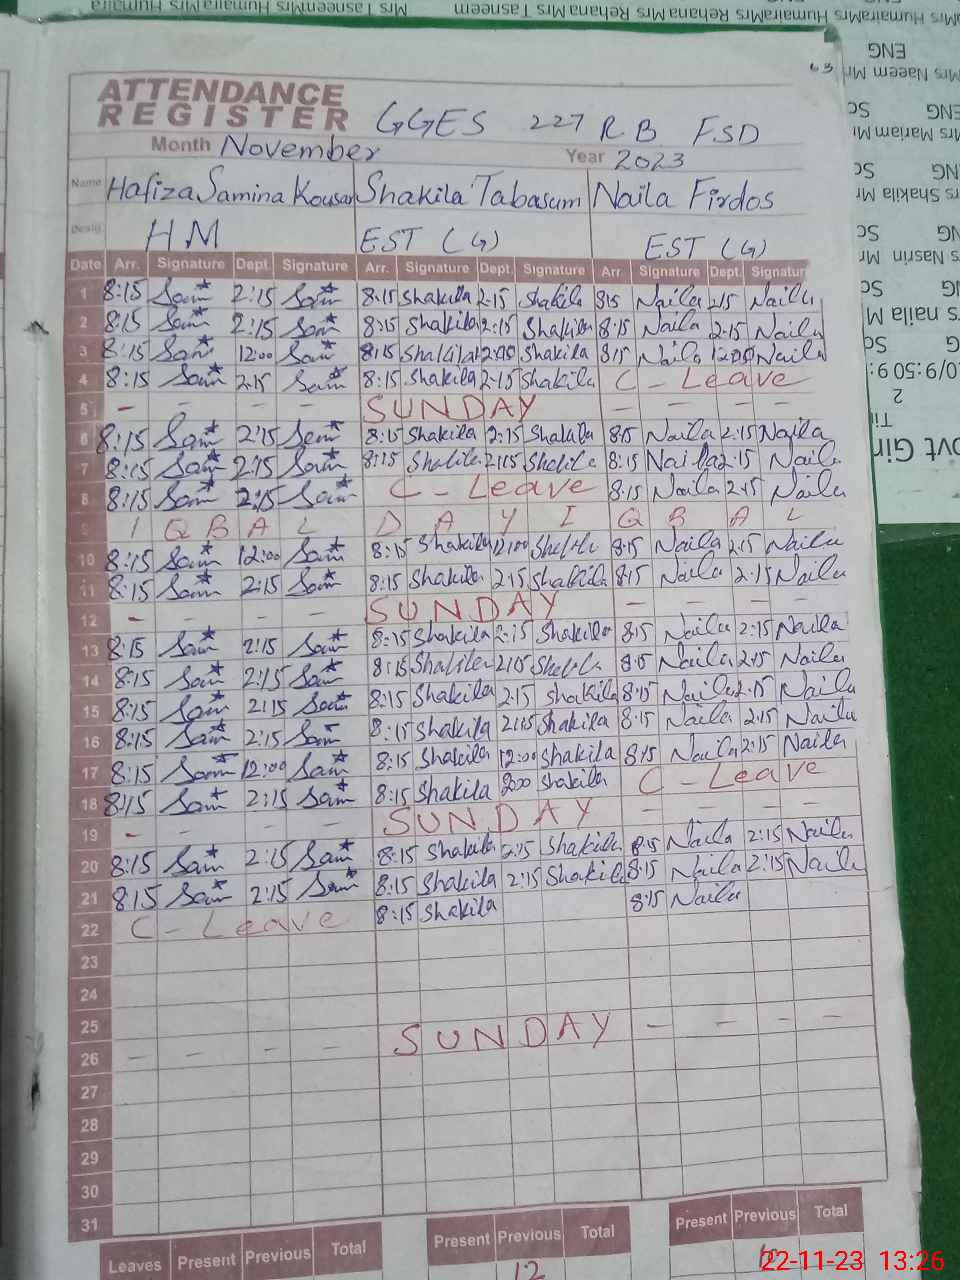 63
ATTENDANCE
REGISTER GGES 227 RB FSD
Month November Year 2023
Name Hafiza Samina Kousar Shakila Tabasum Naila Firdos
Desig. HM EST (G) EST (G)
Date Arr. Signature Dept. Signature Arr. Signature Dept. Signature Arr. Signature Dept. Signature
1 8:15 Sam 2:15 Sam 8:15 Shakila 2:15 Shakila 8:15 Naila 2:15 Naila
2 8:15 Sam 2:15 Sam 8:15 Shakila 2:15 Shakila 8:15 Naila 2:15 Naila
3 8:15 Sam 12:00 Sam 8:15 Shakila 12:00 Shakila 8:15 Naila 12:00 Naila
4 8:15 Sam 2:15 Sam 8:15 Shakila 2:15 Shakila C - Leave
5 - - - - SUNDAY - - - -
6 8:15 Sam 2:15 Sam 8:15 Shakila 2:15 Shakila 8:15 Naila 2:15 Naila
7 8:15 Sam 2:15 Sam 8:15 Shakila 2:15 Shakila 8:15 Naila 2:15 Naila
8 8:15 Sam 2:15 Sam C - Leave 8:15 Naila 2:15 Naila
9 IQBAL DAY IQBAL
10 8:15 Sam 12:00 Sam 8:15 Shakila 12:00 Shakila 8:15 Naila 2:15 Naila
11 8:15 Sam 2:15 Sam 8:15 Shakila 2:15 Shakila 8:15 Naila 2:15 Naila
12 - - - - SUNDAY - - - -
13 8:15 Sam 2:15 Sam 8:15 Shakila 2:15 Shakila 8:15 Naila 2:15 Naila
14 8:15 Sam 2:15 Sam 8:15 Shakila 2:15 Shakila 8:15 Naila 2:15 Naila
15 8:15 Sam 2:15 Sam 8:15 Shakila 2:15 Shakila 8:15 Naila 2:15 Naila
16 8:15 Sam 2:15 Sam 8:15 Shakila 2:15 Shakila 8:15 Naila 2:15 Naila
17 8:15 Sam 12:00 Sam 8:15 Shakila 12:00 Shakila 8:15 Naila 2:15 Naila
18 8:15 Sam 2:15 Sam 8:15 Shakila Shakila C - Leave
19 - - - - SUNDAY - - - -
20 8:15 Sam 2:15 Sam 8:15 Shakila 2:15 Shakila 8:15 Naila 2:15 Naila
21 8:15 Sam 2:15 Sam 8:15 Shakila 2:15 Shakila 8:15 Naila 2:15 Naila
22 C - Leave 8:15 Shakila 8:15 Naila
23
24
25
26 - - - - SUNDAY - - - -
27
28
29
30
31
Leaves Present Previous Total Present Previous Total Present Previous Total
12
22-11-23 13:26
Mrs Tasneem Mrs Rehana Mrs Rehana Mrs Humaira Mrs Humaira
Mrs Tasneem Mrs Humaira Mrs Humaira
ENG
Mrs Naeem
ENG Sc
Mrs Mariam
ENG Sc
Mrs Shakila Mr
NG Sc
s Nasrin Mr
G Sc
s naila M
G Sc
0/9:50 9:
2
Ti
ovt Gir